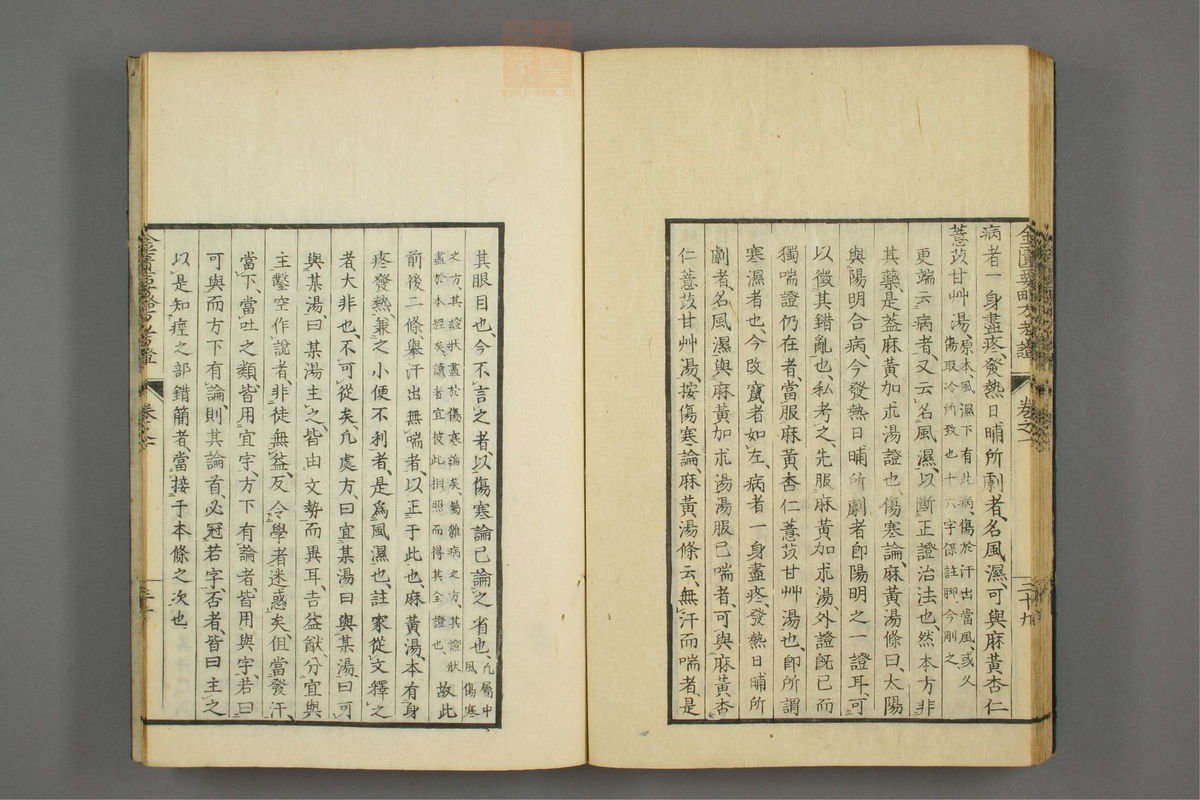 金匱要略方考證
卷之一
二十九
病者一身盡疼、發熱日晡所劇者、名風濕、可與麻黃杏仁
薏苡甘艸湯原本、風濕下有此病、傷於汗出當風、或久
傷取冷所致也十六字係註脚今刪之、
更端云病者、又云名風濕、以斷正證治法也然本方非
其藥、是蓋麻黃加朮湯證也、傷寒論、麻黃湯條曰、太陽
與陽明合病、今發熱日晡所劇者卽陽明之一證耳、可
以徵其錯亂也、私考之、先服麻黃加朮湯、外證旣已而
獨喘證仍在者、當服麻黃杏仁薏苡甘艸湯也、卽所謂
寒濕者也、今改竄者如左、病者一身盡疼、發熱日晡所
劇者、名風濕與麻黃加朮湯湯服已喘者、可與麻黃杏
仁薏苡甘艸湯按傷寒論、麻黃湯條云、無汗而喘者、是
其眼目也、今不言之者、以傷寒論已論之省也、凡屬中
風傷寒
之方、其證狀盡於傷寒論矣、屬雜病之方、其證狀
盡於本經矣、讀者宜彼此相照而得其全證也、故此
前後二條、舉汗出無喘者、以正于此也、麻黃湯、本有身
疼發熱、兼之小便不利者、是爲風濕也、註家從文釋之
者大非也、不可從矣、凡處方、曰宜某湯曰與某湯、曰可
與某湯、曰某湯主之、皆由文勢而異耳、吉益猷、分宜與
主鑿空作說者、非徒無益、反令學者迷惑矣、但當發汗、
當下、當吐之類、皆用宜字、方下有論者、皆用與字、若曰
可與而方下有論、則其論首、必冠若字、否者、皆曰主之
以是知痙之部錯簡者、當接于本條之次也
金匱要略方考證
卷之一
三十